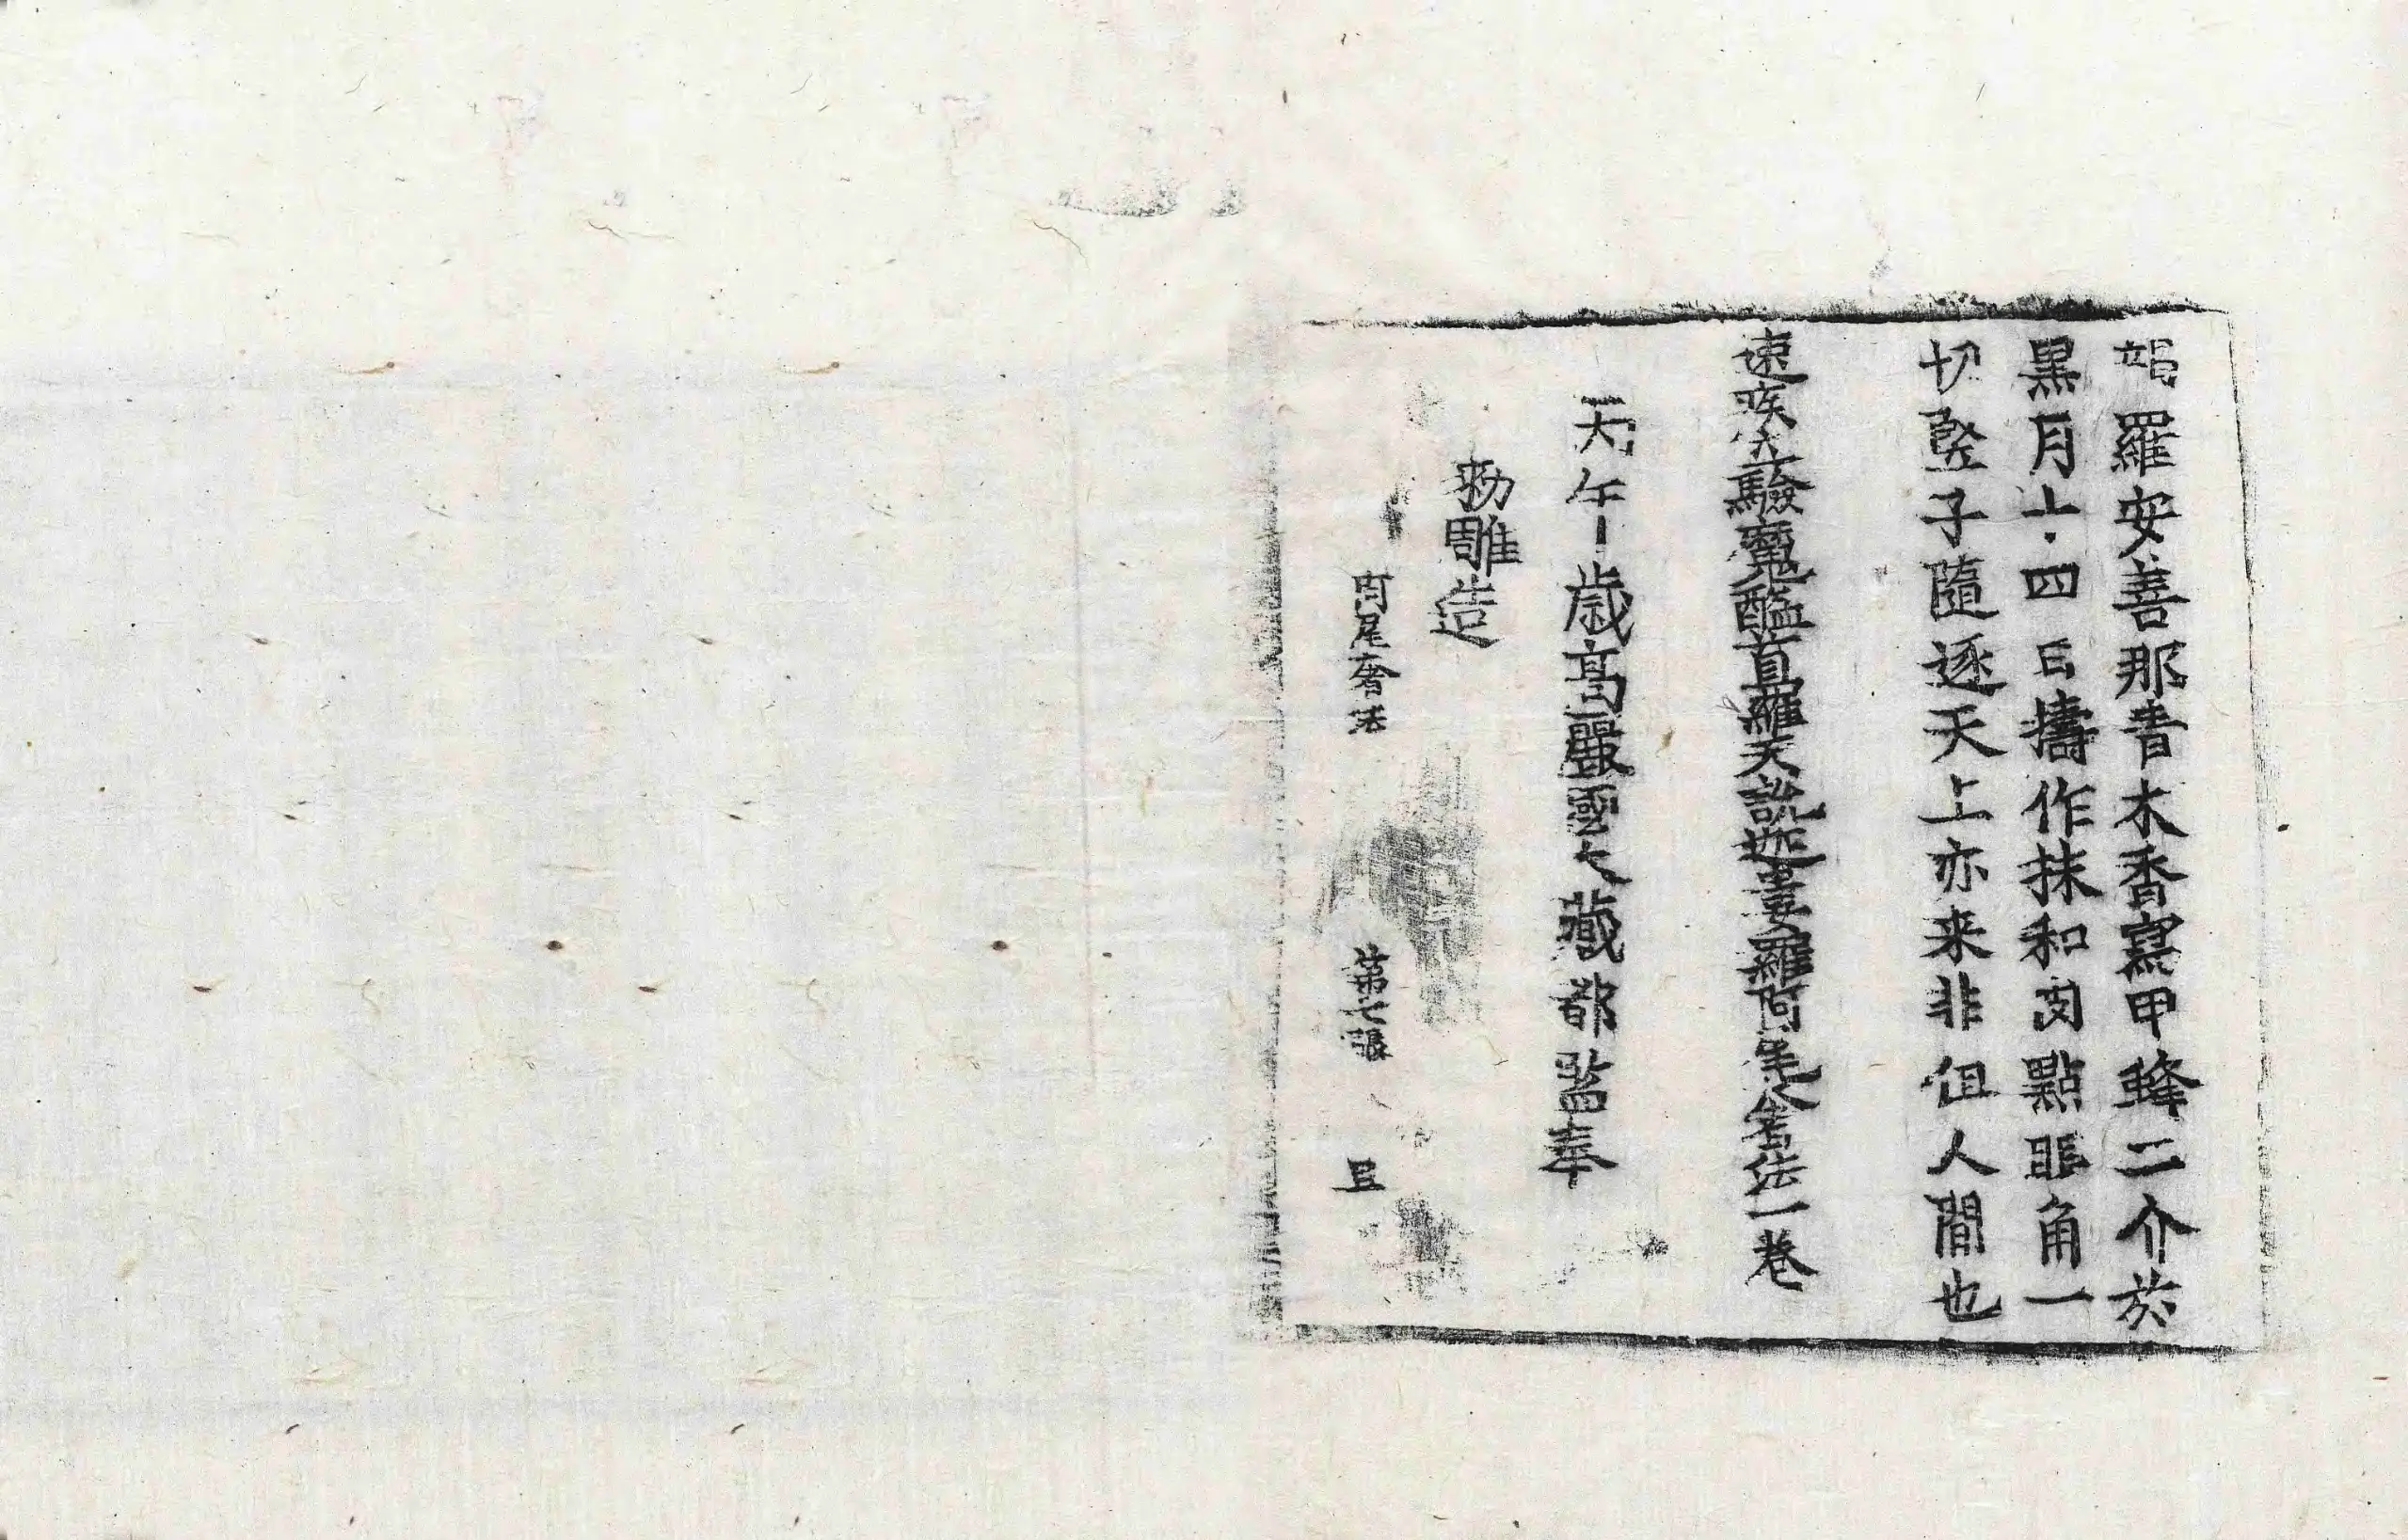 羅安善那青木香寫甲蜂二介於
黑月十四日擣作抹和肉點眶角一
切竪子隨逐天上亦来非但人間也
速疾立驗魔醯首羅天說迦婁羅阿尾奢法一卷
天午歲高麗國大藏都監奉
勑雕造
阿尾奢法 第七張 且